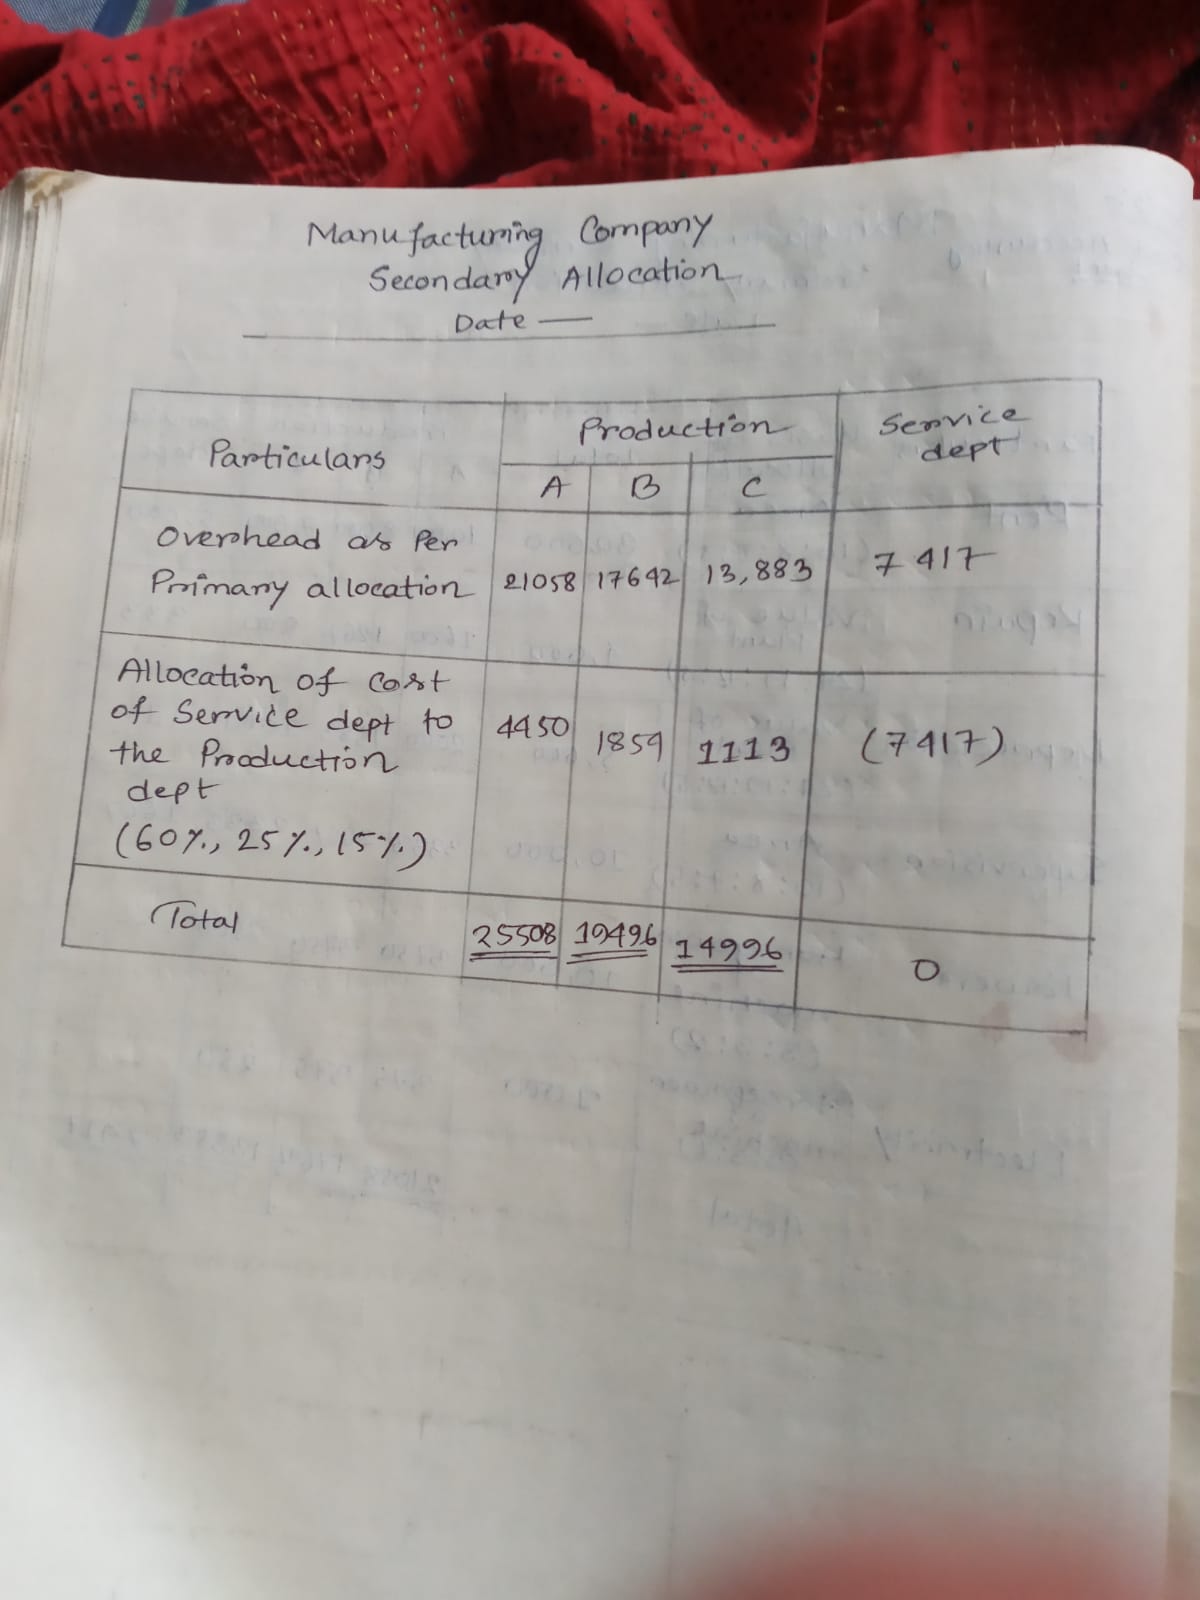 Manufacturing Company
Secondary Allocation
Date —
Particulars
Production
Service
dept
A B C
Overhead as Per
Primary allocation 21058 17642 13,883 7417
Allocation of Cost
of Service dept to
the Production
dept
(60%, 25%, 15%)
4450 1854 1113 (7417)
Total 25508 19496 14996 0